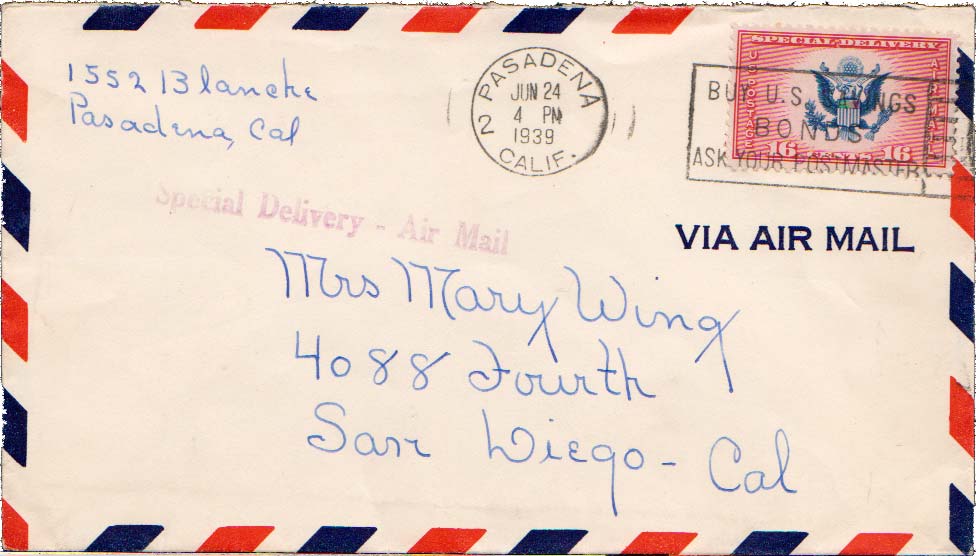 1552 Blanche
Pasadena, Cal
PASADENA
JUN 24
4 PM
1939
2
CALIF.
SPECIAL DELIVERY
U.S. POSTAGE
AIR MAIL
16 CENTS 16
BUY U.S. SAVINGS
BONDS
ASK YOUR POSTMASTER
Special Delivery - Air Mail
VIA AIR MAIL
Mrs Mary Wing
4088 Fourth
San Diego - Cal